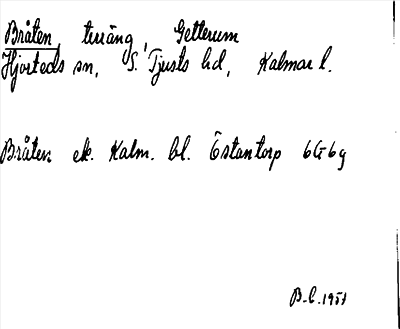 Bråten, terräng, Getterum
Hjorteds sn, S. Tjusts hd, Kalmar l.
Bråten ek. Kalm. bl. Östantorp 6G6g
B-l. 1951